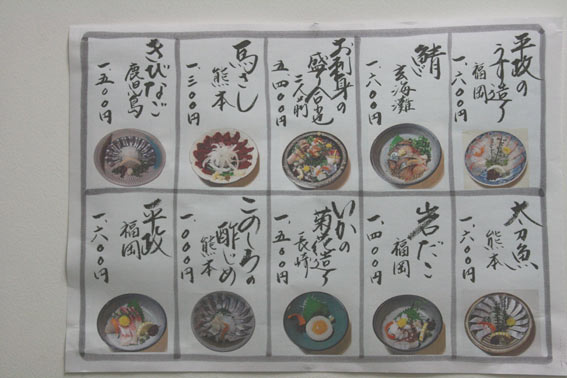 平政の
うす造り
福岡
一、六〇〇円
鯖
玄海灘
一、六〇〇円
お刺身の
盛り合せ
二人前
五、四〇〇円
馬さし
熊本
一、三〇〇円
きびなご
鹿児島
一、五〇〇円
太刀魚
熊本
一、六〇〇円
岩だこ
福岡
一、四〇〇円
いかの
菊花造り
長崎
一、五〇〇円
このしろの
酢じめ
熊本
一、〇〇〇円
平政
福岡
一、六〇〇円